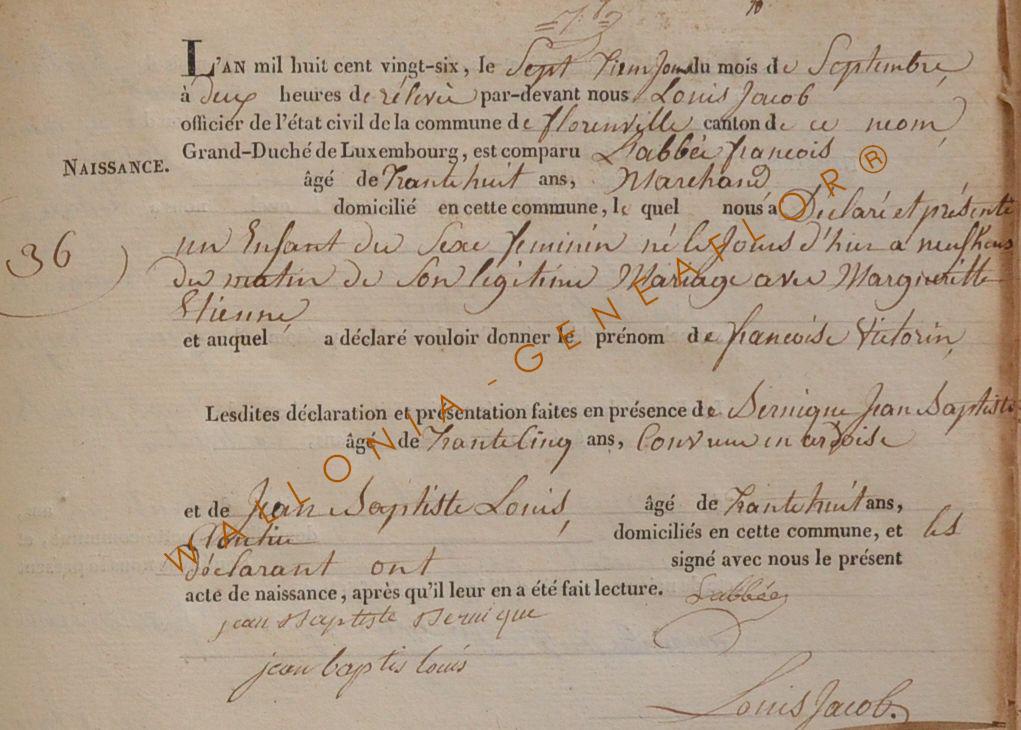 L'AN mil huit cent vingt-six, le Sept ieme Jour du mois de Septembre
à deux heures de relevée par-devant nous Louis Jacob
officier de l'état civil de la commune de florenville canton de ce nom
Grand-Duché de Luxembourg, est comparu Labbée francois
NAISSANCE.
âgé de trante huit ans, Marchand
domicilié en cette commune, le quel nous a Déclaré et présenté
36
un Enfant du Sexe feminin né le Jours d'hier a neuf heurs
du matin de Son légitime Mariage avec Margueritte
Etienne
et auquel a déclaré vouloir donner le prénom de francoise Victorin
Lesdites déclaration et présentation faites en présence de Bernique Jean Baptiste
âgé de trante Cinq ans, Couvreur en ardoise
et de Jean Baptiste Louis âgé de trante huit ans,
domiciliés en cette commune, et les
déclarant ont signé avec nous le présent
acte de naissance, après qu'il leur en a été fait lecture. Labbée
jean Baptiste Bernique
jean baptis louis
Louis Jacob.
WALLONIA-GENEAFLOR®